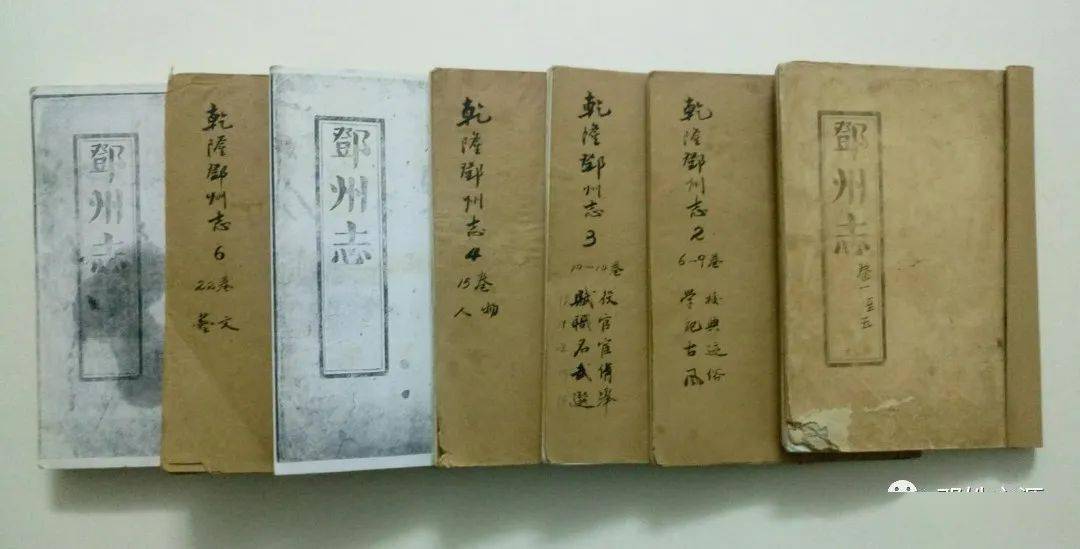 鄧州志
卷一至五
乾隆鄧州志2
6-9卷
学校
祀典
古迹
风俗
乾隆鄧州志3
10-14卷
賦役
職官
名宦
武備
選舉
乾隆鄧州志4
15卷
人物
鄧州志
乾隆鄧州志6
22卷
藝文
鄧州志